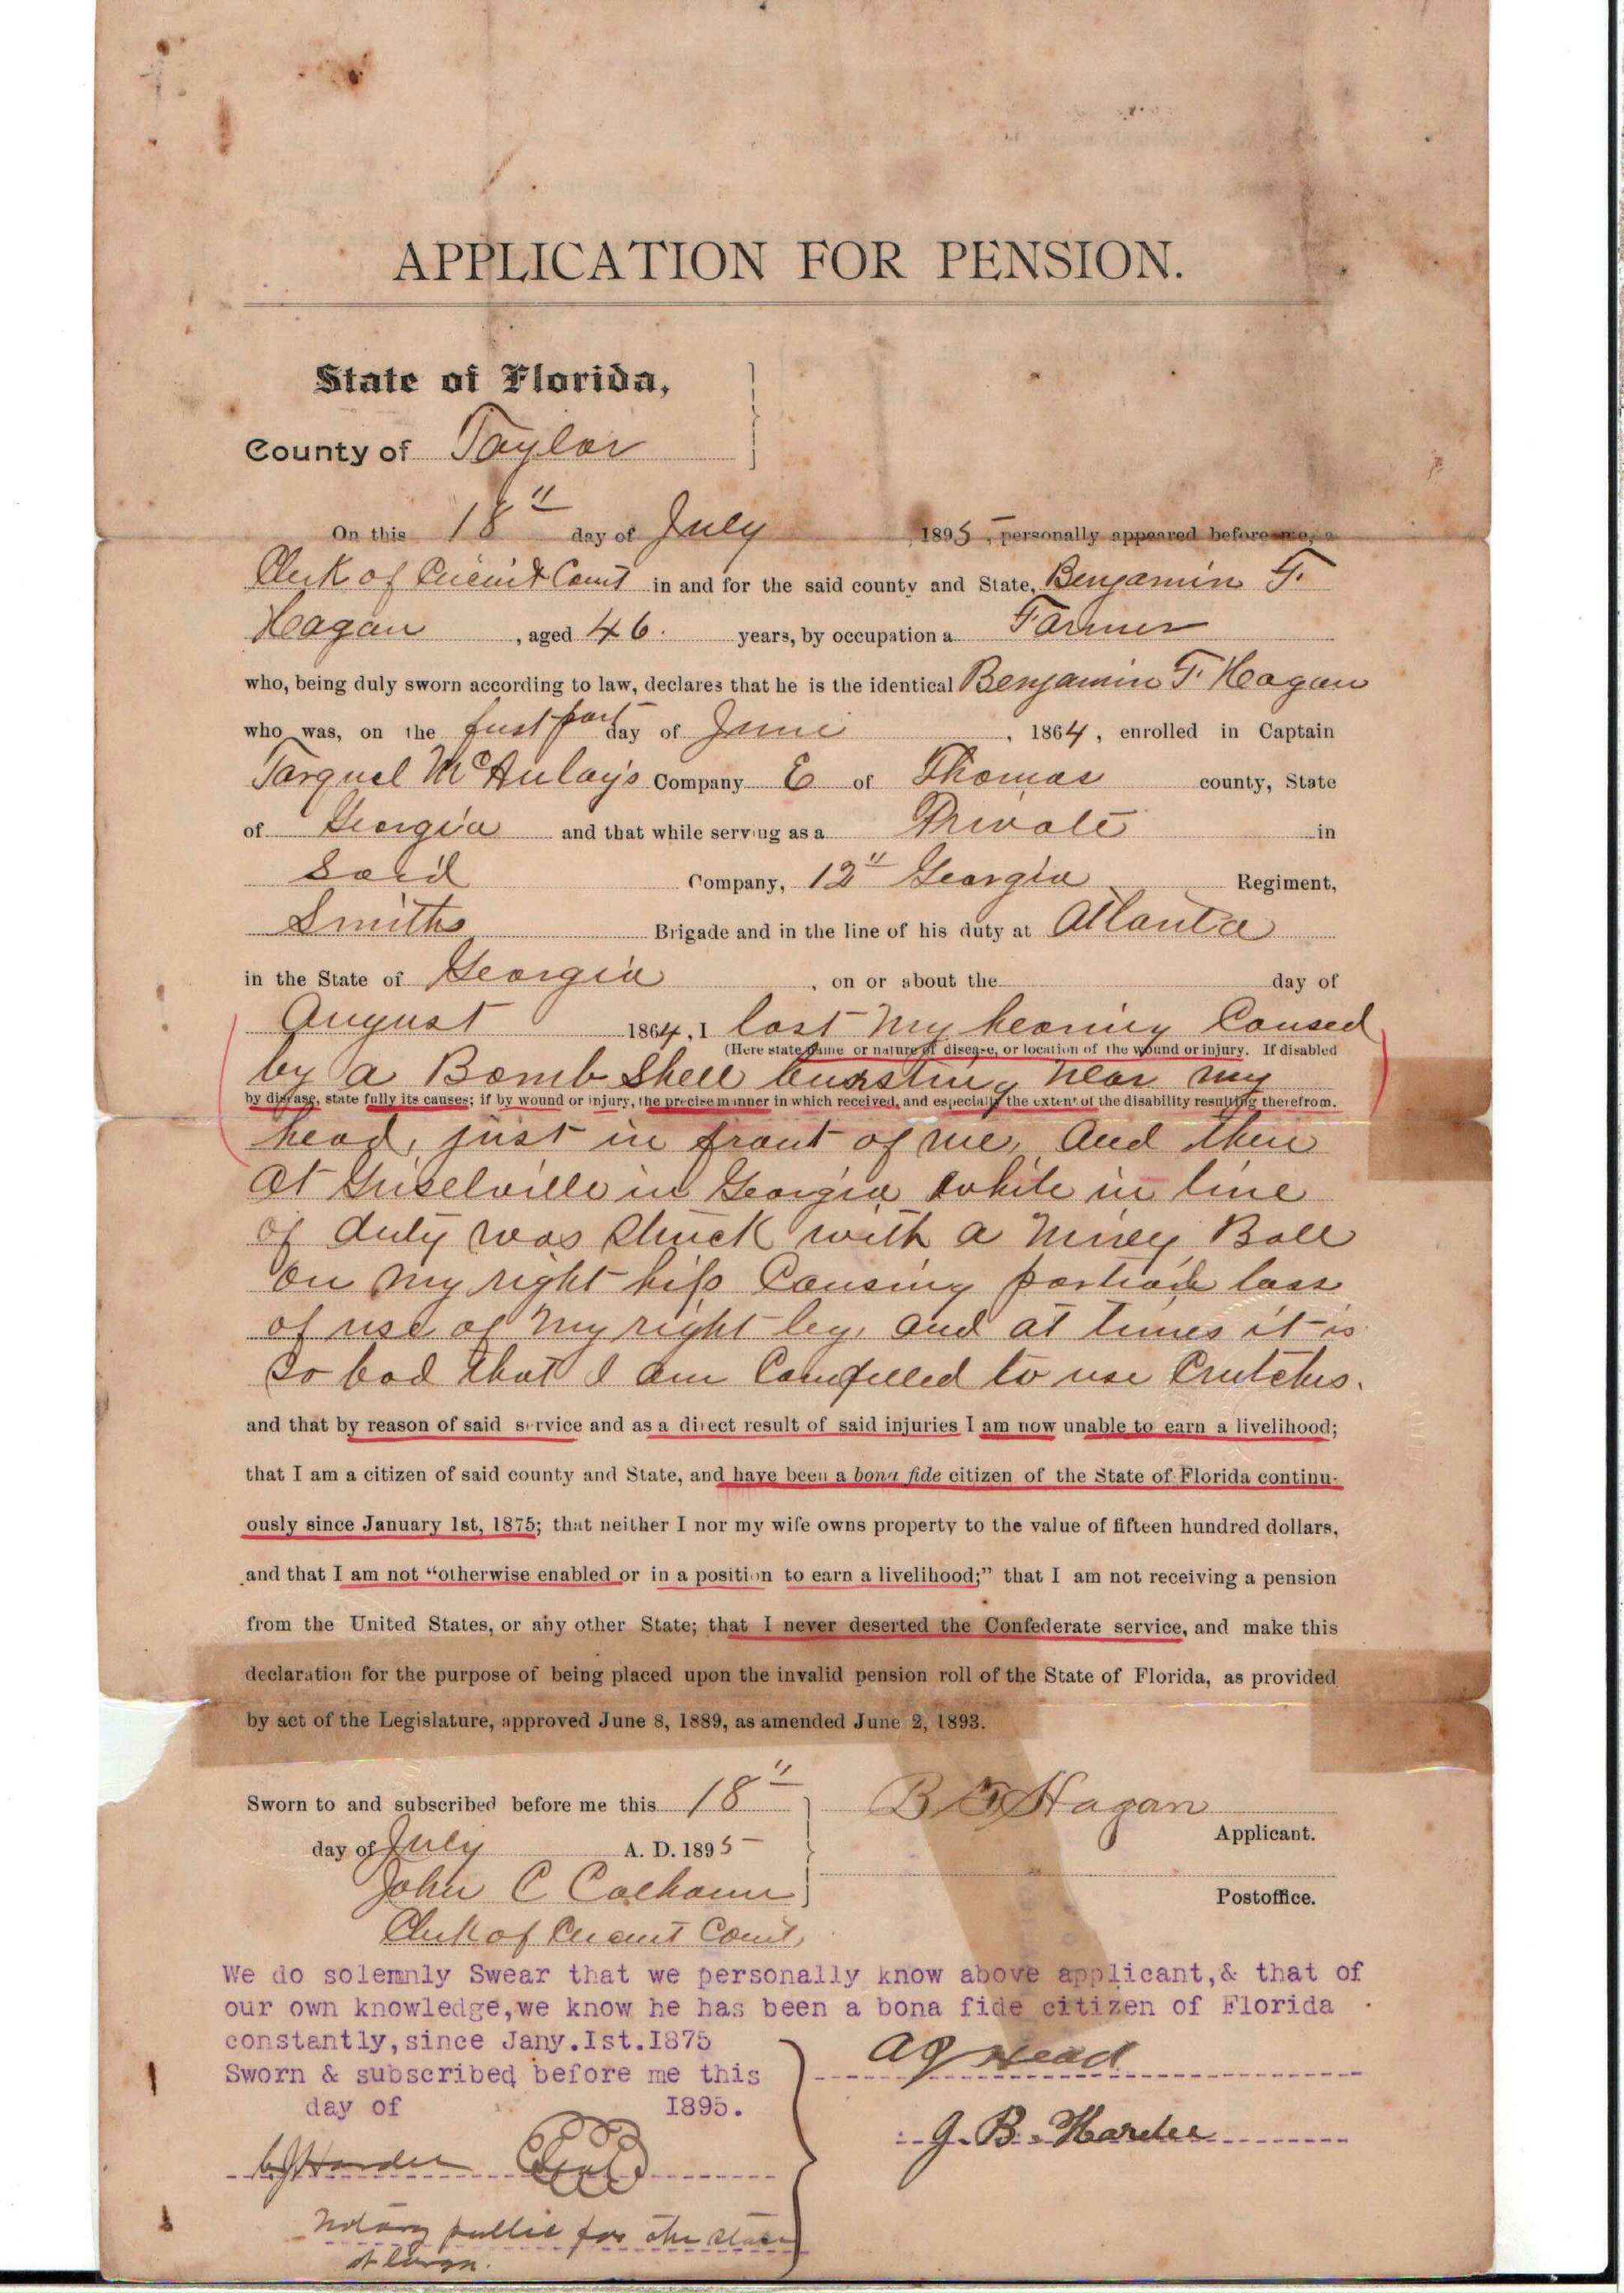 APPLICATION FOR PENSION.
State of Florida,
County of Taylor
On this 18" day of July, 1895, personally appeared before me, a
Clerk of Circuit Court in and for the said county and State, Benjamin F.
Hagan, aged 46. years, by occupation a Farmer
who, being duly sworn according to law, declares that he is the identical Benjamin F. Hagan
who was, on the first part day of June, 1864, enrolled in Captain
Torquel McAulay's Company E of Thomas county, State
of Georgia and that while serving as a Private in
Said Company, 12" Georgia Regiment,
Smiths Brigade and in the line of his duty at Atlanta
in the State of Georgia, on or about the day of
August 1864, I lost my hearing Caused
(Here state name or nature of disease, or location of the wound or injury. If disabled
by a Bomb Shell bursting near my
by disease, state fully its causes; if by wound or injury, the precise manner in which received, and especially the extent of the disability resulting therefrom.
head, just in front of me, and then
at Griselville in Georgia while in line
of duty was struck with a Miney Ball
on my right hip Causing partial loss
of use of my right leg, and at times it is
so bad that I am Compelled to use Crutches.
and that by reason of said service and as a direct result of said injuries I am now unable to earn a livelihood;
that I am a citizen of said county and State, and have been a bona fide citizen of the State of Florida continu-
ously since January 1st, 1875; that neither I nor my wife owns property to the value of fifteen hundred dollars,
and that I am not "otherwise enabled or in a position to earn a livelihood;" that I am not receiving a pension
from the United States, or any other State; that I never deserted the Confederate service, and make this
declaration for the purpose of being placed upon the invalid pension roll of the State of Florida, as provided
by act of the Legislature, approved June 8, 1889, as amended June 2, 1893.
Sworn to and subscribed before me this 18"
day of July A. D. 1895
John C Calhoun
Clerk of Circuit Court,
B F Hagan
Applicant.
Postoffice.
We do solemnly Swear that we personally know above applicant,& that of
our own knowledge,we know he has been a bona fide citizen of Florida
constantly,since Jany.Ist.I875
Sworn & subscribed before me this
day of I895.
Seal
Notary public for the state
at large.
A J Head
J. B. Hardee